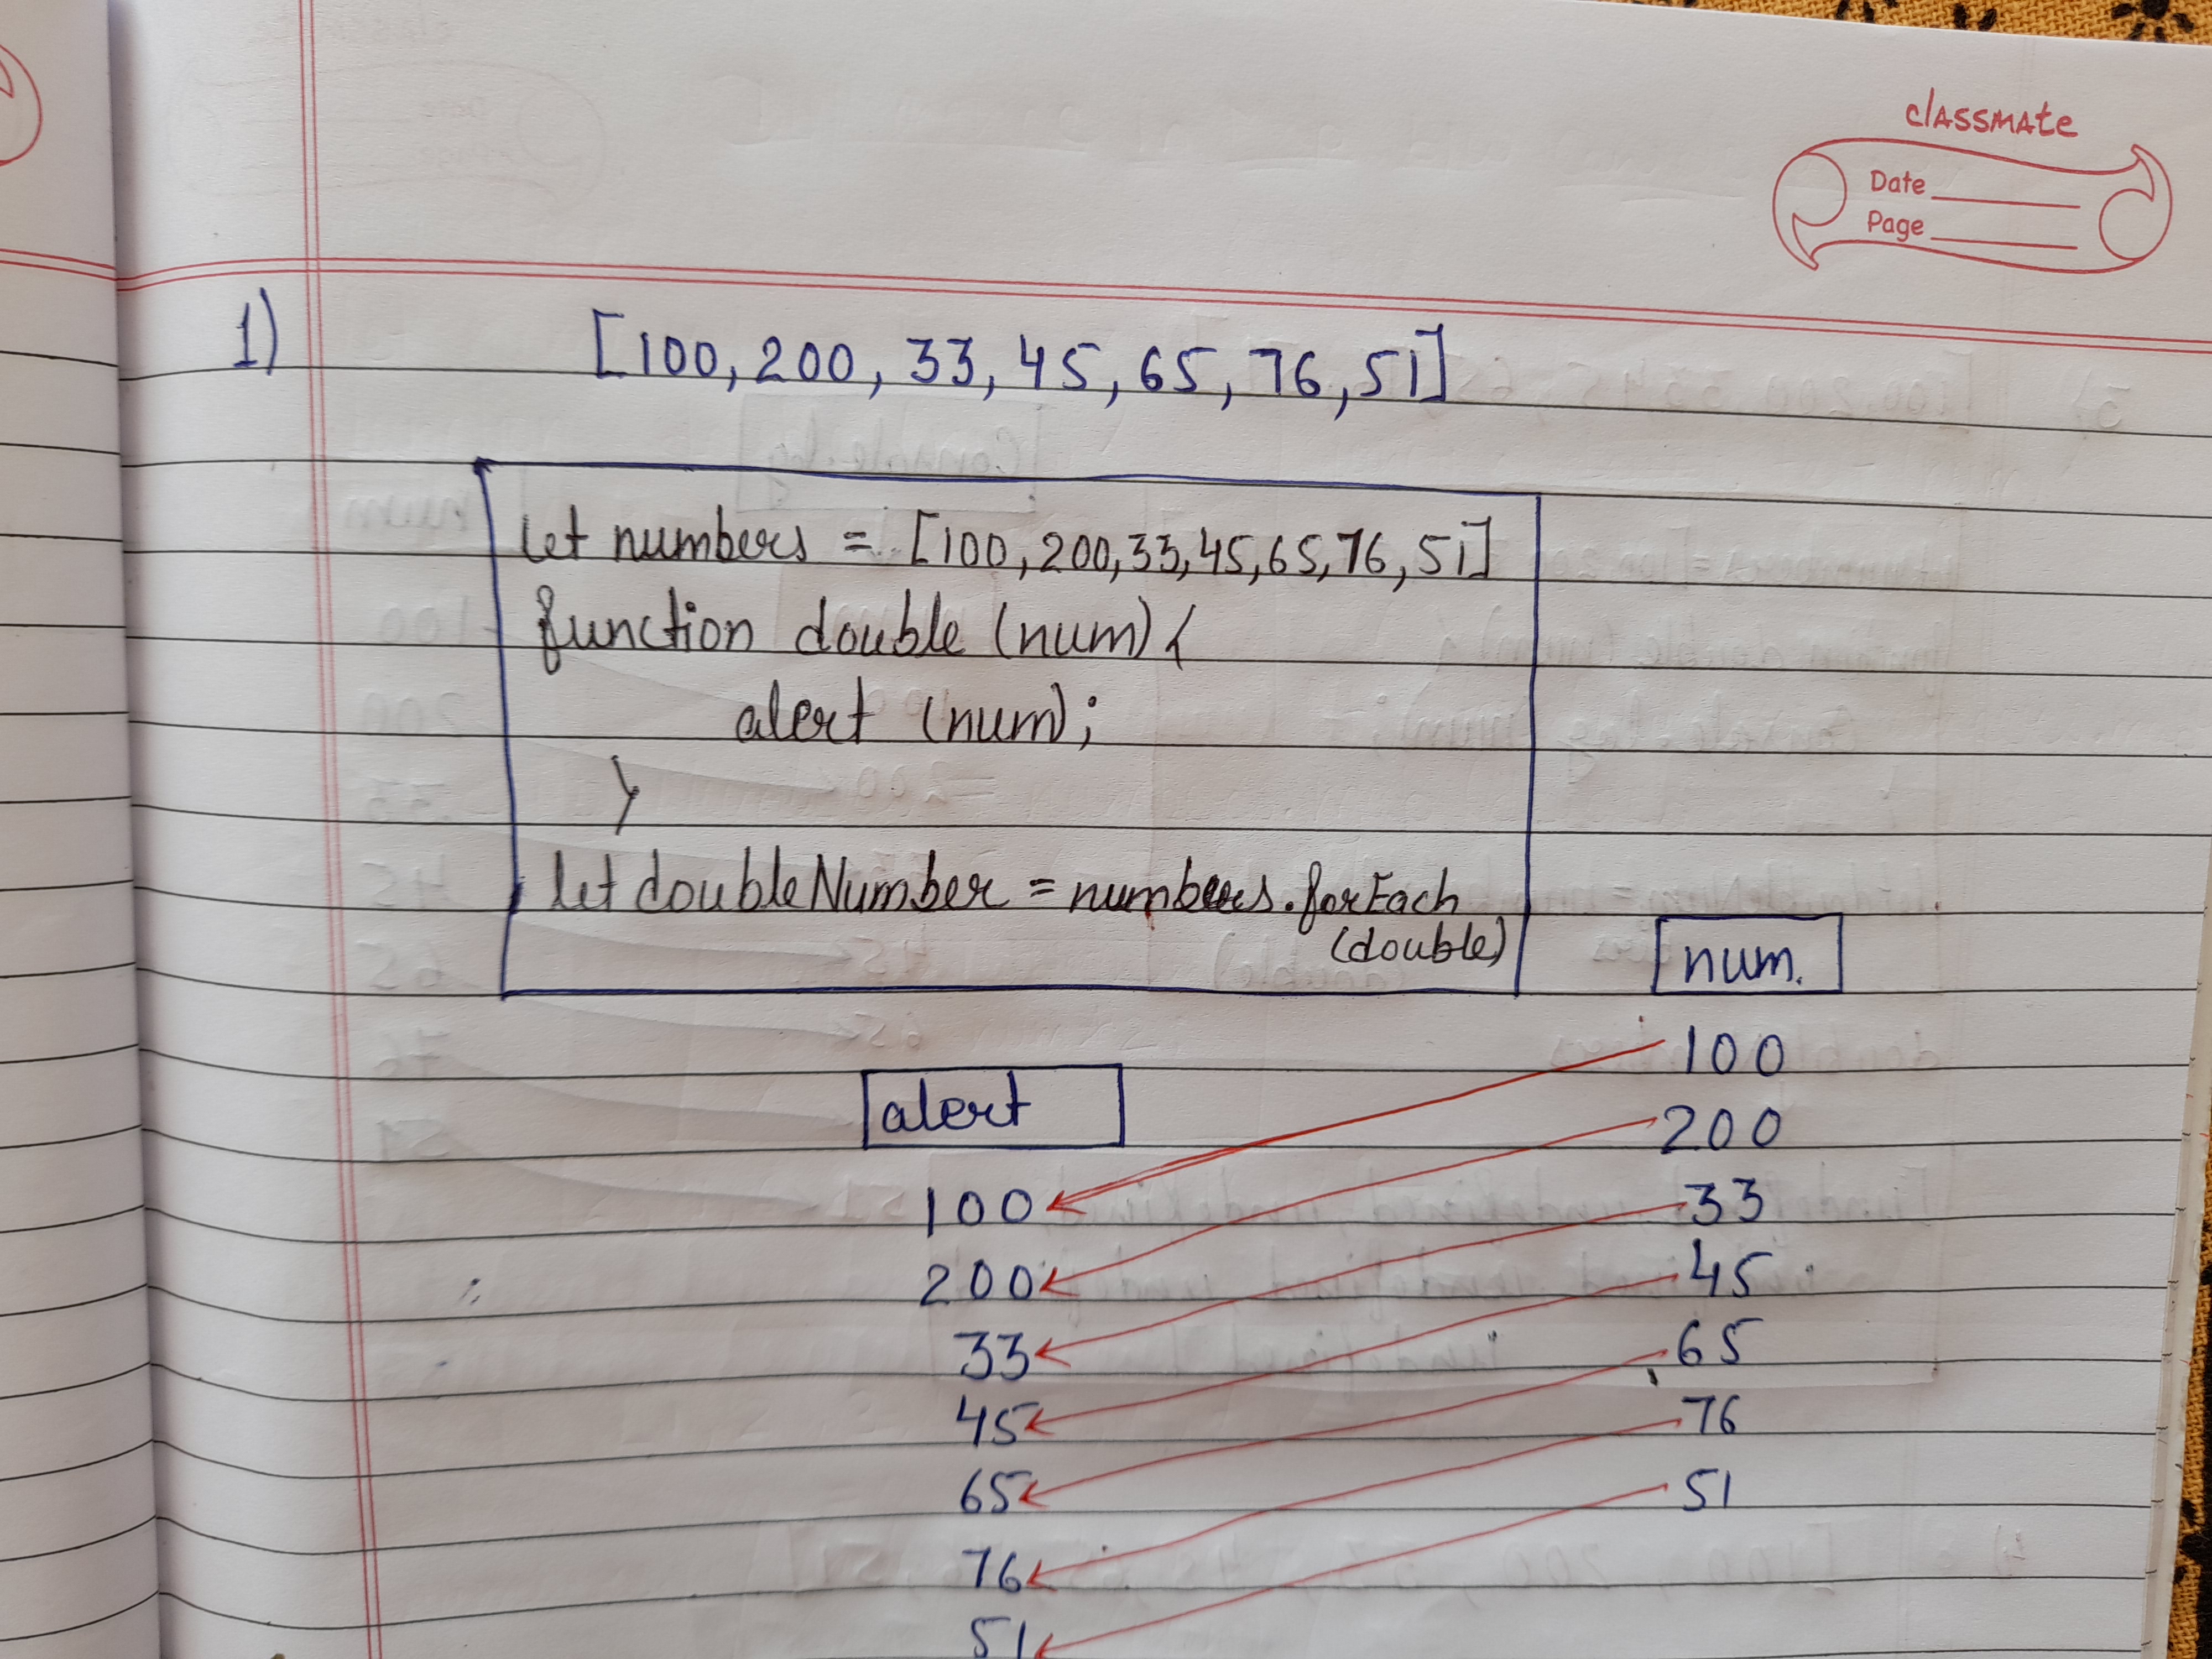 classmate
Date
Page
1) [100, 200, 33, 45, 65, 76, 51]
let numbers = [100, 200, 33, 45, 65, 76, 51]
function double (num) {
alert (num);
}
let doubleNumber = numbers.forEach
(double)
num.
alert
100
200
100
33
200
45
33
65
45
76
65
51
76
51